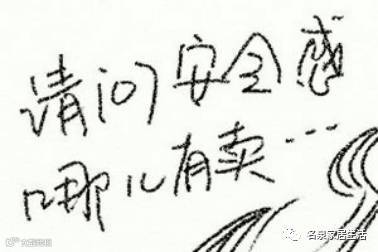 请问安全感
哪儿有卖…
名泉家居生活